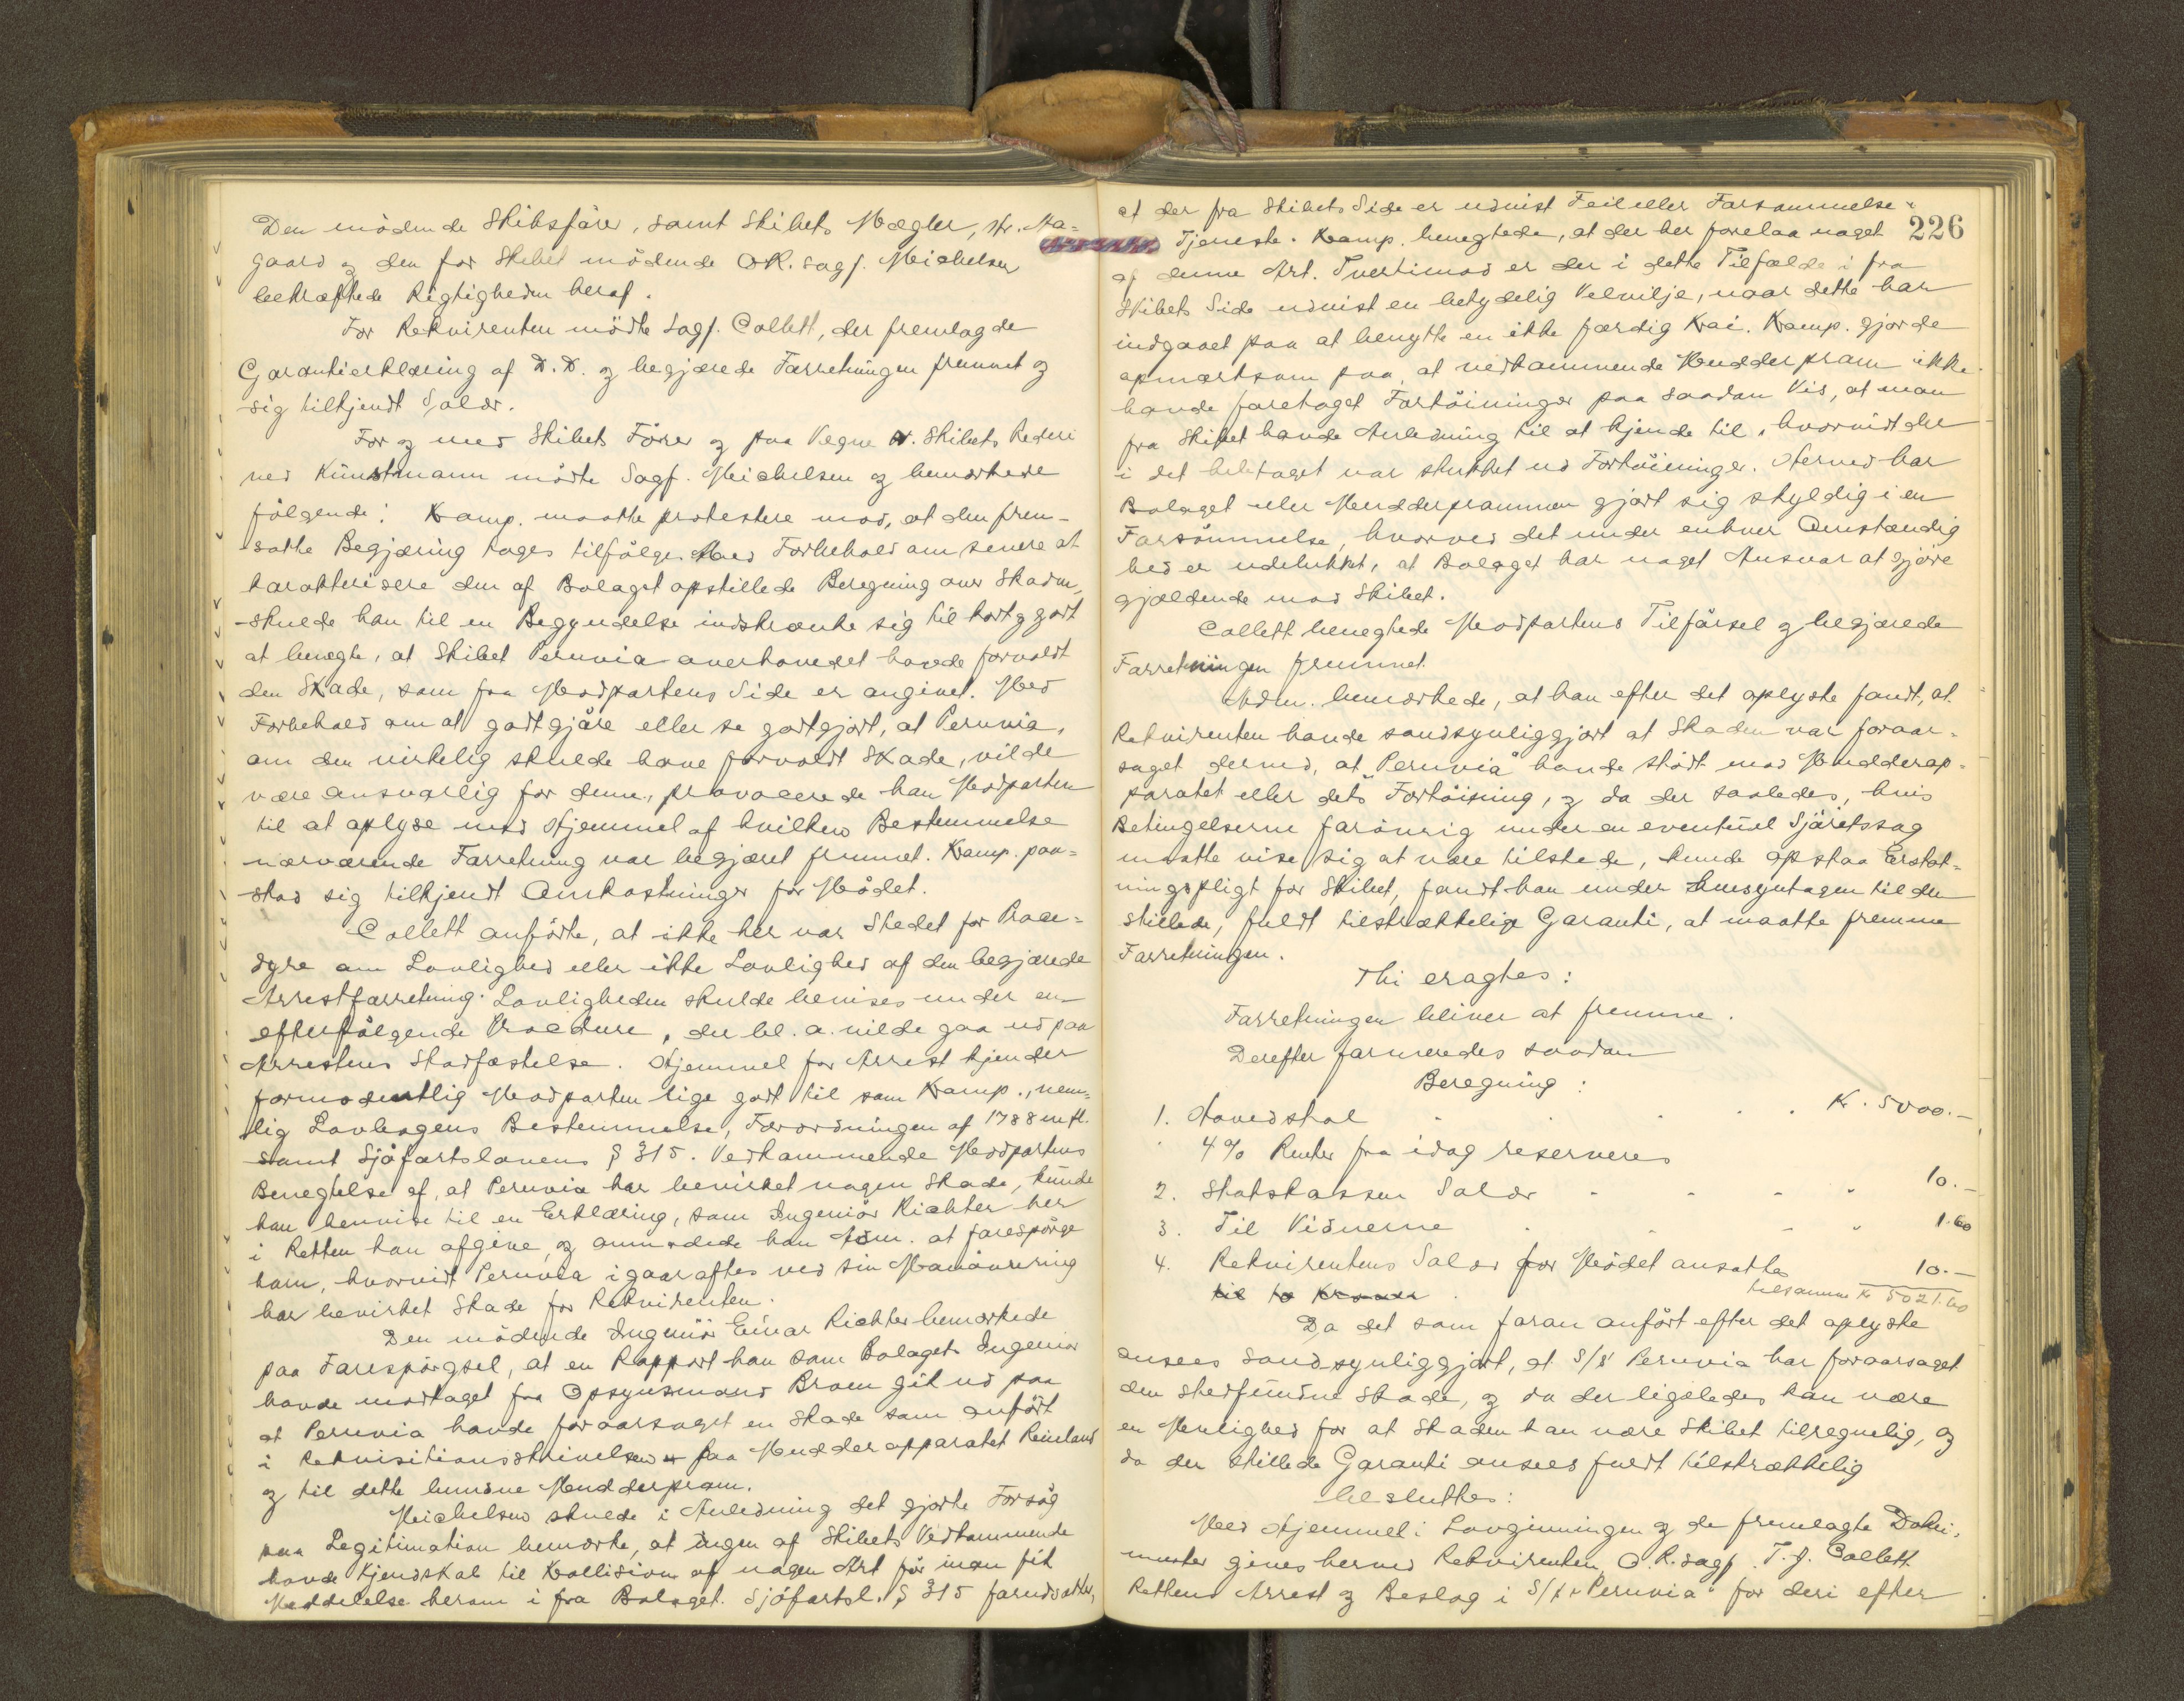 Den mödende Skibsförer, samt Skibets Mægler, Hr. Ma=
gaard og den for Skibet mödende OR. sagf. Michelsen
bekræftede Rigtigheden heraf.
For Rekvirenten mödte Sagf. Collett, der fremlagde
Garantierklæring af D. D. og begjærede Forretningen fremmet og
sig tilkjendt Salær.
For og med Skibets Förer og paa Vegne Skibets Rederi
ved Künstmann mödte Sagf. Michelsen og bemærkede
fölgende: Komp. maatte protestere mod, at den frem-
satte Begjæring tages tilfölge. Med Forbehold om senere at
karakterisere den af Bolaget opstillede Beregning over Skaden,
skulde han til en Begyndelse indskrænke sig til kort og godt
at benegte, at Skibet Peruvia overhovedet havde forvoldt
den Skade, som fra Modpartens Side er angivet. Med
Forbehold om at godtgjöre eller se godtgjort, at Peruvia,
om den virkelig skulde have forvoldt Skade, vilde
være ansvarlig for denne, provocerede han Modparten
til at oplyse med Hjemmel af hvilken Bestemmelse
nærværende Forretning var begjæret fremmet. Komp. paa=
stod sig tilkjendt Omkostninger for Mödet.
Collett anförte, at ikke her var Stedet for Proce=
dyre om Lovlighed eller ikke Lovlighed af den begjærede
Arrestforretning. Lovligheden skulde bevises under en
efterfölgende Procedure, der bl. a. vilde gaa ud paa
Arrestens Stadfæstelse. Hjemmel for Arrest kjender
formodentlig Modparten lige godt til som Komp., nem=
lig Lovbogens Bestemmelse, Forordningen af 1788 m fl.
samt Sjöfartslovens § 315. Vedkommende Modpartens
Benegtelse af, at Peruvia har bevirket nogen Skade, kunde
han henvise til en Erklæring, som Ingeniör Richter her
i Retten kan afgive og anmodede han Adm. at forespörge
ham, hvorvidt Peruvia igaaraftes ved sin Manövrering
har bevirket Skade for Rekvirenten.
Den mödende Ingeniör Einar Richter bemærkede
paa Forespörgsel, at en Rapport han som Bolagets Ingeniör
havde modtaget fra Opsynsmand Broen gik ud paa
at Peruvia havde foraarsaget en Skade som anfört
i Rekvisitionsskrivelsen paa Mudderapparatet Reinland
og til dette bundne Mudderpram.
Michelsen skulde i Anledning det gjorte Forsög
paa Legitimation bemærke, at ingen af Skibets Vedkommende
havde Kjendskab til Kollision af nogen Art för man fik
Meddelelse herom i fra Bolaget. Sjöfartsl. § 315 forudsætter,
226
at der fra Skibets Side er udvist Feil eller Forsömmelse i
Tjeneste. Komp. benegtede, at der her forelaa noget
af denne Art. Tvertimod er der i dette Tilfælde i fra
Skibets Side udvist en betydelig Velvilje, naar dette har
indgaaet paa at benytte en ikke færdig Kai. Komp. gjorde
opmærksom paa, at vedkommende Mudderpram ikke
havde foretaget Fortöininger paa saadan Vis, at man
fra Skibet havde Anledning til at kjende til, hvorvidt der
i det heletaget var stukket ud Fortöininger. Herved har
Bolaget eller Mudderprammen gjort sig skyldig i en
Forsömmelse, hvorved det under enhver Omstændig
hed er udelukket, at Bolaget har noget Ansvar at gjöre
gjældende mod Skibet.
Collett benegtede Modpartens Tilförsel og begjærede
Forretningen fremmet.
Adm. bemærkede, at han efter det oplyste fandt, at
Rekvirenten havde sandsynliggjort at Skaden var foraar=
saget derved, at "Peruvia" havde stödt mod Mudderap=
paratet eller dets Fortöining, og da der saaledes, hvis
Betingelserne forövrig under en eventuel Sjöretssag
maatte vise sig at være tilstede, kunde opstaa Erstat=
ningspligt for Skibet, fandt han under Hensyntagen til den
stillede, fuldt tilstrækkelige Garanti, at maatte fremme
Forretningen.
Thi eragtes:
Forretningen bliver at fremme.
Derefter formeredes saadan
Beregning:
1. Hovedstol Kr. 5000.-
4% Renter fra idag reserveres
2. Statskassen Salær 10.-
3. Til Vidnerne 1.60
4. Rekvirentens Salær for Mödet ansattes 10.-
til to Kroner tilsammen Kr 5021.60
Da det som foran anfört efter det oplyste
ansees sandsynliggjort, at S/S Peruvia har foraarsaget
den stedfundne Skade, og da der ligeledes kan være
en Mulighed for at Skaden kan være Skibet tilregnelig, og
da den stillede Garanti ansees fuldt tilstrækkelig
besluttes:
Med Hjemmel i Lovgivningen og de fremlagte Doku,
menter gives herved Rekvirenten O.R.sagf. T.J. Collett
Rettens Arrest og Beslag i S/S "Peruvia" for deri efter